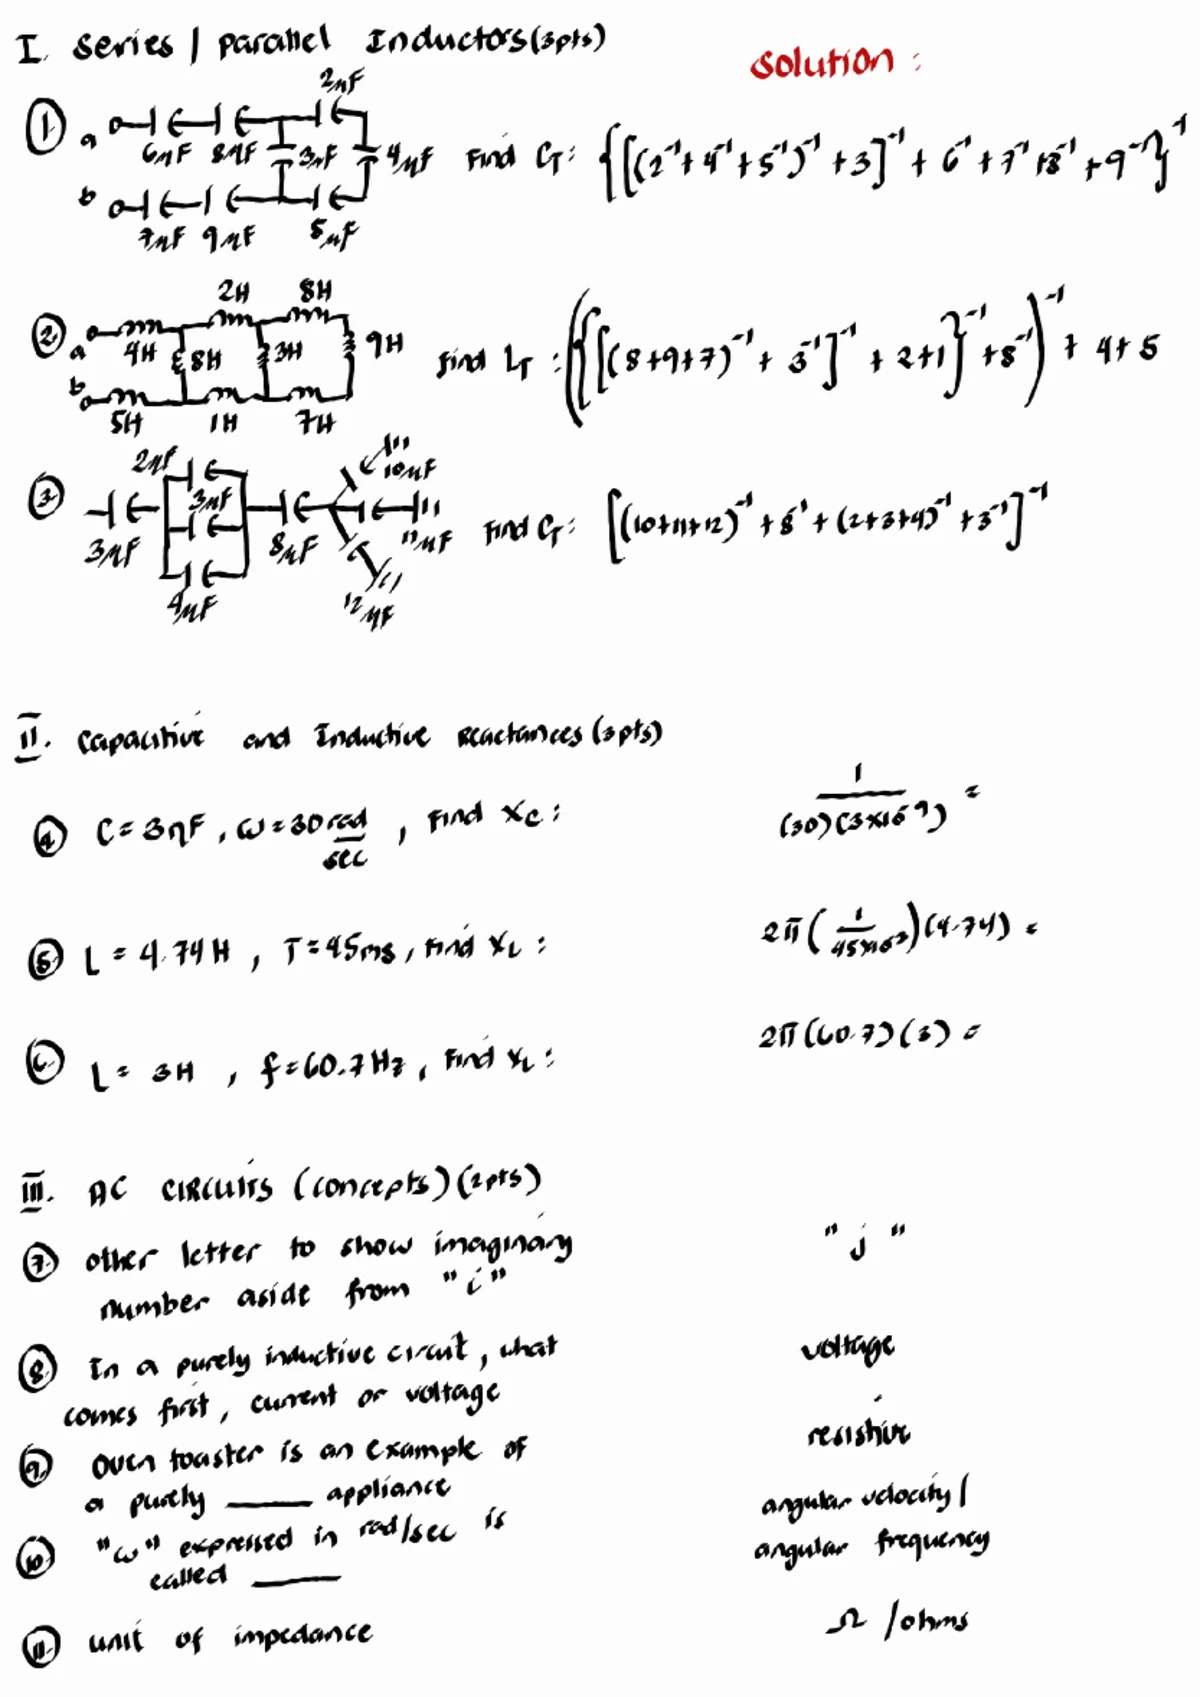 I. Series / Parallel Inductors (3pts)
Solution :
① a 6μF 8μF 2μF 3μF 4μF Find C_T : {[(2⁻¹+4⁻¹+5⁻¹)⁻¹+3]⁻¹+6⁻¹+7⁻¹+8⁻¹+9⁻¹}⁻¹
b 7μF 9μF 5μF
② a 4H 2H 8H 8H 3H 9H Find L_T : ({[(8+9+7)⁻¹+3⁻¹]⁻¹+2+1}⁻¹+8⁻¹)⁻¹+4+5
b 5H 1H 7H
③ 3μF 2μF 3μF 4μF 8μF 10μF 11μF 12μF Find C_T : [(10+11+12)⁻¹+8⁻¹+(2+3+4)⁻¹+3⁻¹]⁻¹
II. Capacitive and Inductive Reactances (3pts)
④ C = 3ηF , ω = 30 rad/sec , Find Xc : 1/(30)(3×10⁻⁹) =
⑤ L = 4.74H , T = 45ms , Find X_L : 2π(1/45×10⁻³)(4.74) =
⑥ L = 3H , f = 60.7Hz , Find X_L : 2π(60.7)(3) =
III. AC CIRCUITS (concepts) (2pts)
⑦ other letter to show imaginary
number aside from "i"
"j"
⑧ In a purely inductive circuit, what
comes first, current or voltage
voltage
⑨ Oven toaster is an example of
a purely ____ appliance
resistive
⑩ "ω" expressed in rad/sec is
called ____
angular velocity /
angular frequency
⑪ unit of impedance
Ω /ohms